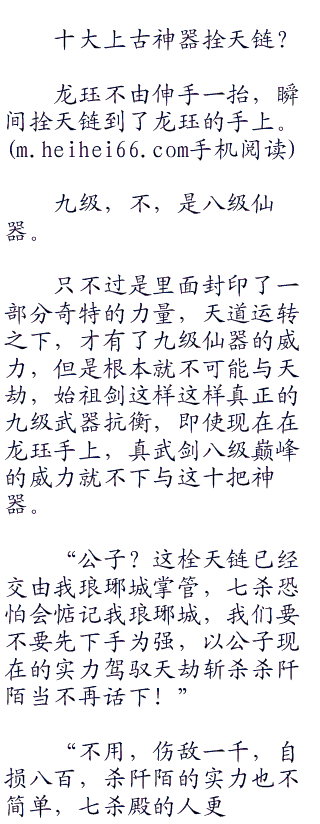 十大上古神器拴天链？
龙珏不由伸手一抬，瞬
间拴天链到了龙珏的手上。
(m.heihei66.com手机阅读)
九级，不，是八级仙
器。
只不过是里面封印了一
部分奇特的力量，天道运转
之下，才有了九级仙器的威
力，但是根本就不可能与天
劫，始祖剑这样这样真正的
九级武器抗衡，即使现在在
龙珏手上，真武剑八级巅峰
的威力就不下与这十把神
器。
“公子？这栓天链已经
交由我琅琊城掌管，七杀恐
怕会惦记我琅琊城，我们要
不要先下手为强，以公子现
在的实力驾驭天劫斩杀杀阡
陌当不再话下！”
“不用，伤敌一千，自
损八百，杀阡陌的实力也不
简单，七杀殿的人更